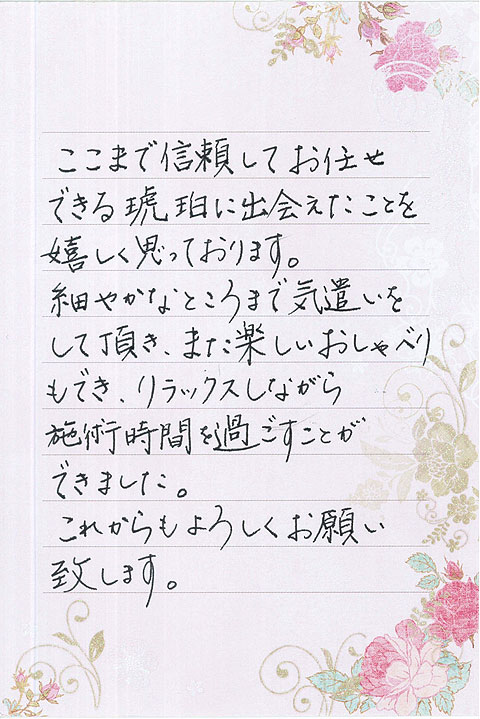 ここまで信頼してお任せ
できる琥珀に出会えたことを
嬉しく思っております。
細やかなところまで気遣いを
して頂き、また楽しいおしゃべり
もでき、リラックスしながら
施術時間を過ごすことが
できました。
これからもよろしくお願い
致します。